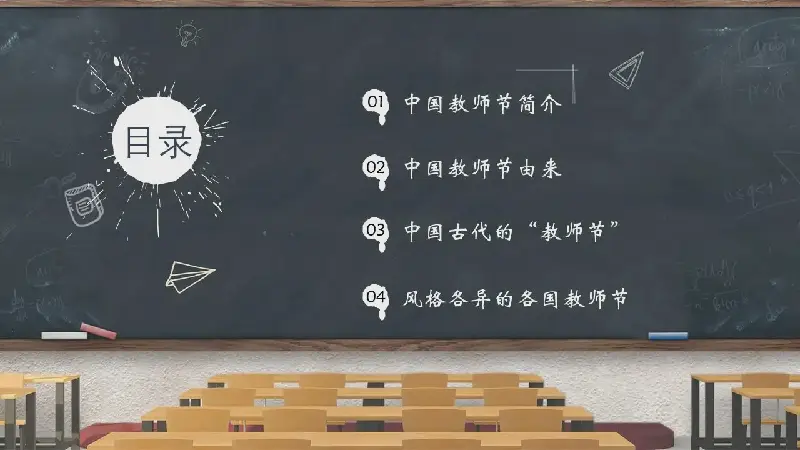 目录
01 中国教师节简介
02 中国教师节由来
03 中国古代的“教师节”
04 风格各异的各国教师节